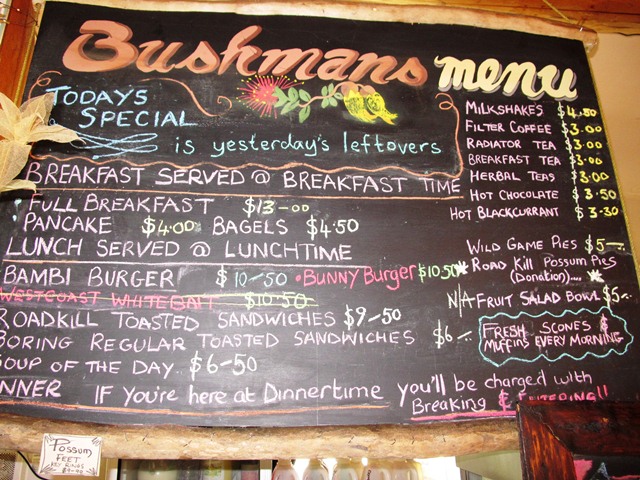 Bushmans menu
TODAYS
SPECIAL
is yesterday's leftovers
BREAKFAST SERVED @ BREAKFAST TIME
FULL BREAKFAST $13-00
PANCAKE $4.00 BAGELS $4.50
LUNCH SERVED @ LUNCHTIME
BAMBI BURGER $10-50 •BUNNY Burger $10.50
WESTCOAST WHITEBAIT $10.50
ROADKILL TOASTED SANDWICHES $9-50
BORING REGULAR TOASTED SANDWICHES $6-
SOUP OF THE DAY. $6-50
NNER IF You're here at Dinnertime you'll be charged with
Breaking & ENTERING!!
MILKSHAKES $4.50
FILTER COFFEE $3.00
RADIATOR TEA $3.00
BREAKFAST TEA $3.00
HERBAL TEAS $3.00
HOT CHOCOLATE $3.50
HOT BLACKCURRANT $3.30
WILD GAME PIES $5-
ROAD KILL POSSUM PIES
(DONATION)....
N/A FRUIT SALAD BOWL $5-
FRESH SCONES &
MUFFINS EVERY MORNING
POSSUM
FEET
KEY RINGS